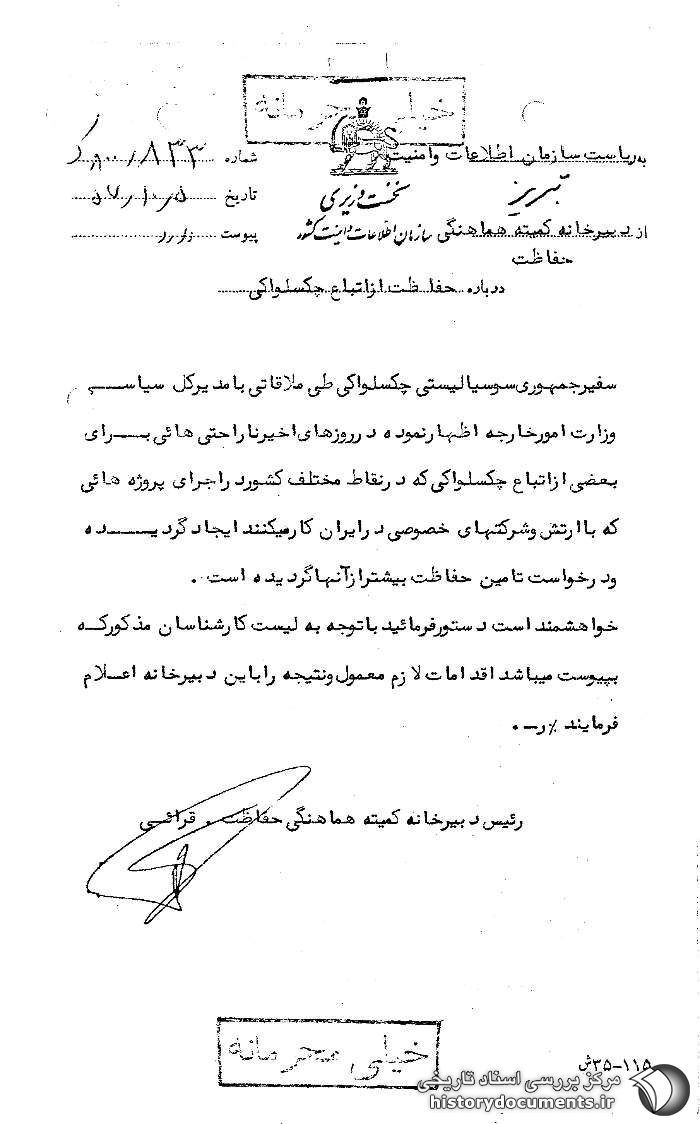 خیلی محرمانه
به ریاست سازمان اطلاعات و امنیت تبریز
شماره ۸۳۳/
نخست وزیری
تاریخ ۵۷/۱۰/۵
از دبیرخانه کمیته هماهنگی حفاظت
سازمان اطلاعات و امنیت کشور
پیوست دارد
درباره حفاظت از اتباع چکسلواکی
سفیر جمهوری سوسیالیستی چکسلواکی طی ملاقاتی با مدیرکل سیاسی
وزارت امور خارجه اظهار نموده در روزهای اخیر ناراحتی هائی برای
بعضی از اتباع چکسلواکی که در نقاط مختلف کشور در اجرای پروژه هائی
که با ارتش و شرکتهای خصوصی در ایران کار میکنند ایجاد گردیده
و درخواست تامین حفاظت بیشتر از آنها گردیده است .
خواهشمند است دستور فرمائید با توجه به لیست کارشناسان مذکور که
بپیوست میباشد اقدامات لازم معمول و نتیجه را باین دبیرخانه اعلام
فرمایند ٪ر-.
رئیس دبیرخانه کمیته هماهنگی حفاظت . قرائی
خیلی محرمانه
۱۱۵-۳۵ش
مرکز بررسی اسناد تاریخی
historydocuments.ir